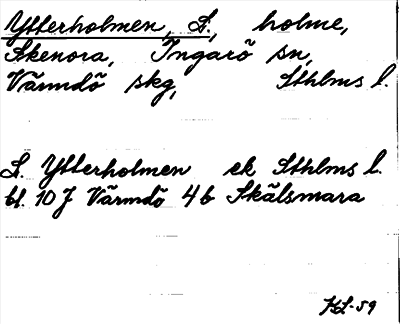 Ytterholmen, L., holme,
Skenora, Ingarö sn,
Värmdö skg, Sthlms l.
L. Ytterholmen ek Sthlms l.
bl. 10 J Värmdö 4 b Skälsmara
KL-59